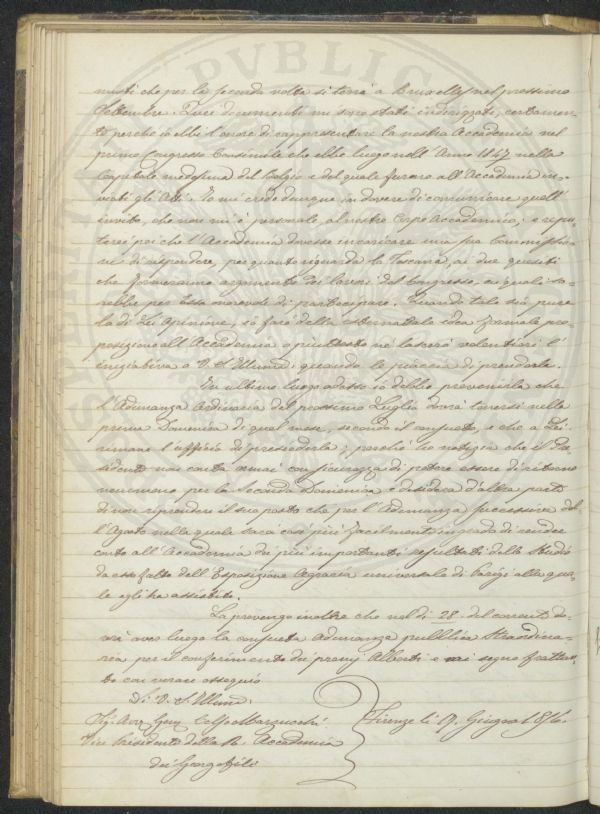 misti che per la seconda volta si terrà a Bruxelles nel prossimo
Settembre. Quei documenti mi sono stati indirizzati, certamen-
te perché io ebbi l'onore di rappresentare la nostra Accademia nel
primo Congresso consimile che ebbe luogo nell'Anno 1847 nella
Capitale medesima del Belgio e del quale furono all'Accademia in-
viati gli Atti. Io mi credo dunque in dovere di comunicare quell'
invito, che non mi è personale al nostro Corpo Accademico, e repu-
terei poi che l'Accademia dovesse incaricare una sua Commissio-
ne di rispondere, per quanto riguarda la Toscana, ai due quesiti
che formeranno argomento dei lavori del Congresso, ai quali sa-
rebbe per Essa onorevole di partecipare. Quando tale sia pure
la di Lei opinione, io farò della esternatale idea formale pro-
posizione all'Accademia o piuttosto ne lascerò volentieri l'
iniziativa a V. S. Illuma. quando le piaccia di prenderla.
In ultimo luogo adesso io debbo prevenirla che
l'Adunanza Ordinaria del prossimo Luglio dovrà tenersi nella
prima Domenica di quel mese, secondo il consueto, e che a Lei
rimane l'ufficio di presiederla; perché ho notizia che il Pre-
sidente non conta omai con sicurezza di potere essere di ritorno
nemmeno per la Seconda Domenica e desidera d'altra parte
di non riprendere il suo posto che per l'Adunanza successiva del-
l'Agosto nella quale sarà così più facilmente in grado di rendere
conto all'Accademia dei più importanti resultati dello Studio
da esso fatto dell'Esposizione Agraria universale di Parigi alla qua-
le egli ha assistito.
La prevengo inoltre che nel dì 28. del corrente do-
vrà aver luogo la consueta Adunanza pubblica Straordina-
ria per il conferimento dei premj Alberti e mi segno frattan-
to con verace ossequio
Di V. S. Illuma.
Sig. Avv. Gen. Celso Marzucchi
Firenze li 19. Giugno 1856.
Vice Presidente della R. Accademia
dei Georgofili